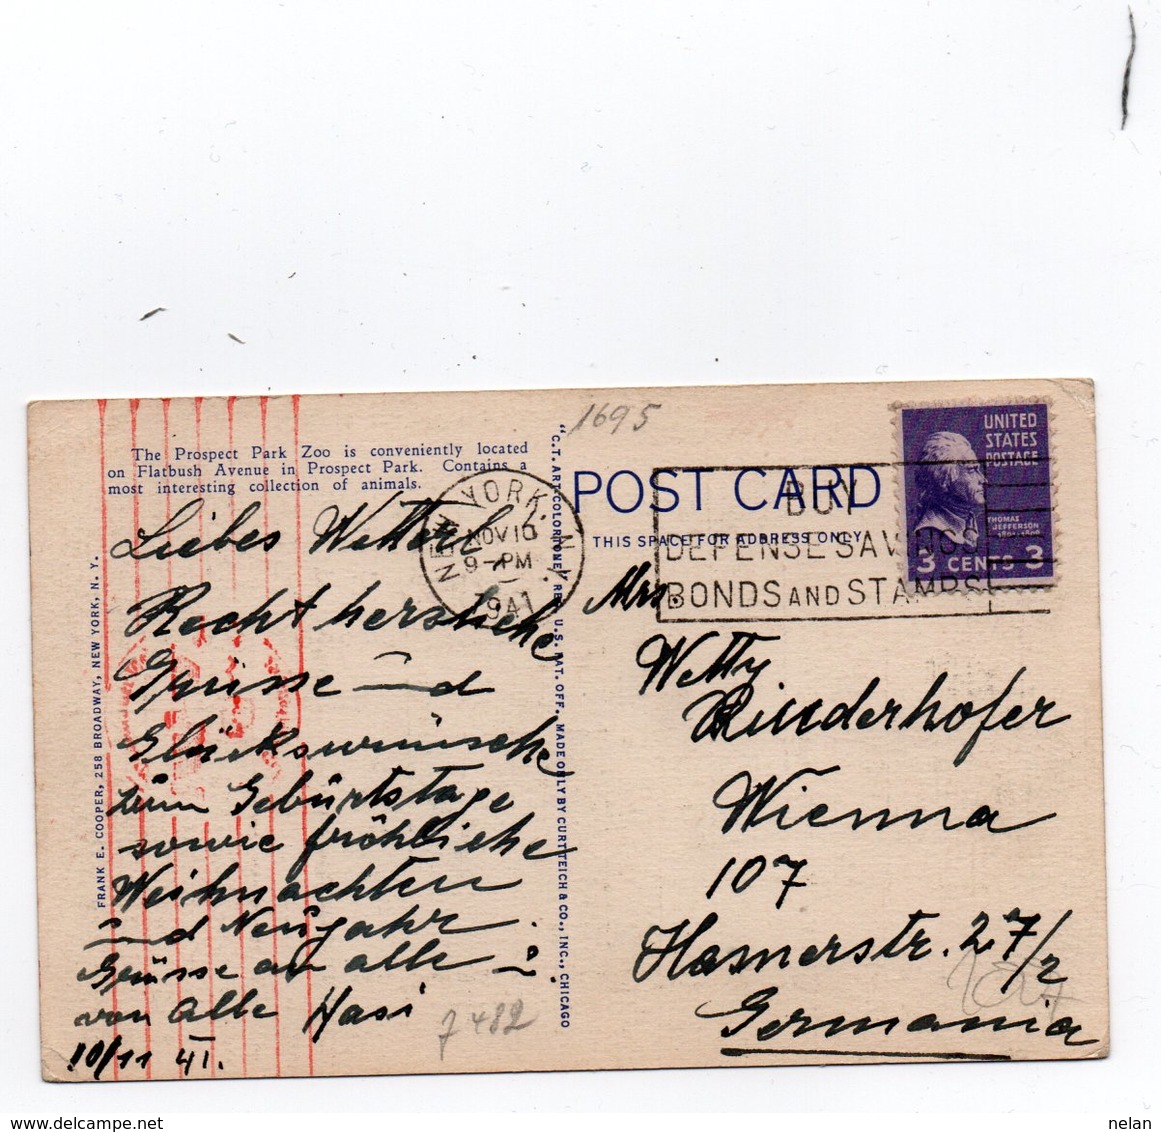 1695
The Prospect Park Zoo is conveniently located
on Flatbush Avenue in Prospect Park. Contains a
most interesting collection of animals.
Liebes Wetterl!
Recht herzliche
Grüsse und
Glückswünsche
zum Gebürtstage
sowie fröhliche
Weihnachten
und Neujahr.
Grüsse an alle
von alle Hasi
10/11 41.
7482
FRANK E. COOPER, 258 BROADWAY, NEW YORK, N. Y.
"C.T. ART-COLORTONE" REG. U.S. PAT. OFF. MADE ONLY BY CURT TEICH & CO., INC., CHICAGO
NEW YORK, N.Y.
NOV 10
9-PM
1941
POST CARD
THIS SPACE FOR ADDRESS ONLY
BUY
DEFENSE SAVINGS
BONDS AND STAMPS
UNITED
STATES
POSTAGE
THOMAS
JEFFERSON
1801-1809
3 CENTS 3
Mrs.
Wetty
Rinderhofer
Wienna
107
Hasnerstr. 27/2
Germania
nelan